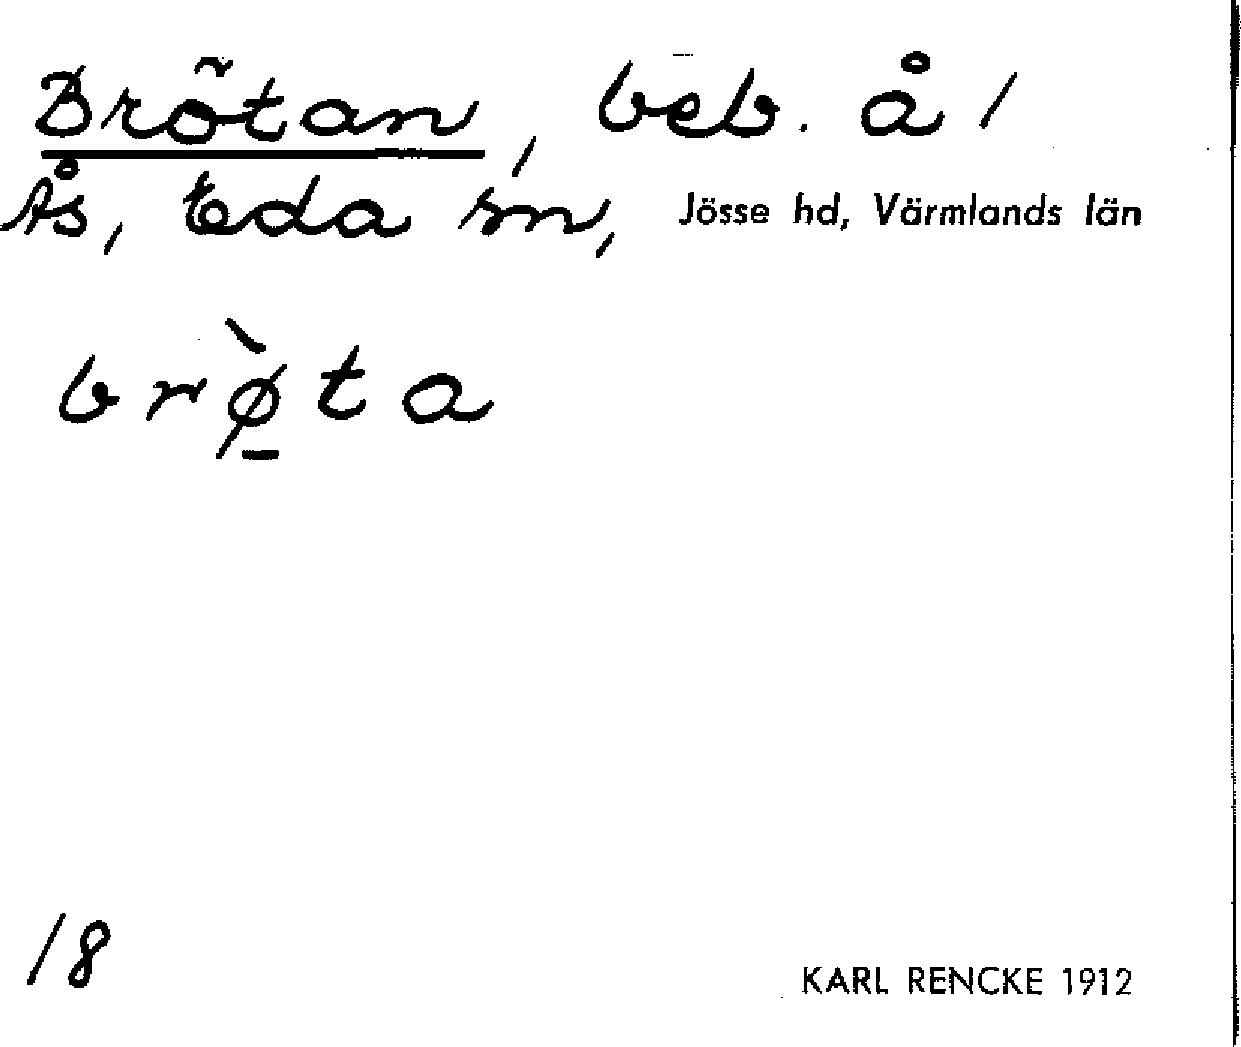 Brötan, beb. å 1
Ås, Eda sn, Jösse hd, Värmlands län
brø̱̀ta
18
KARL RENCKE 1912